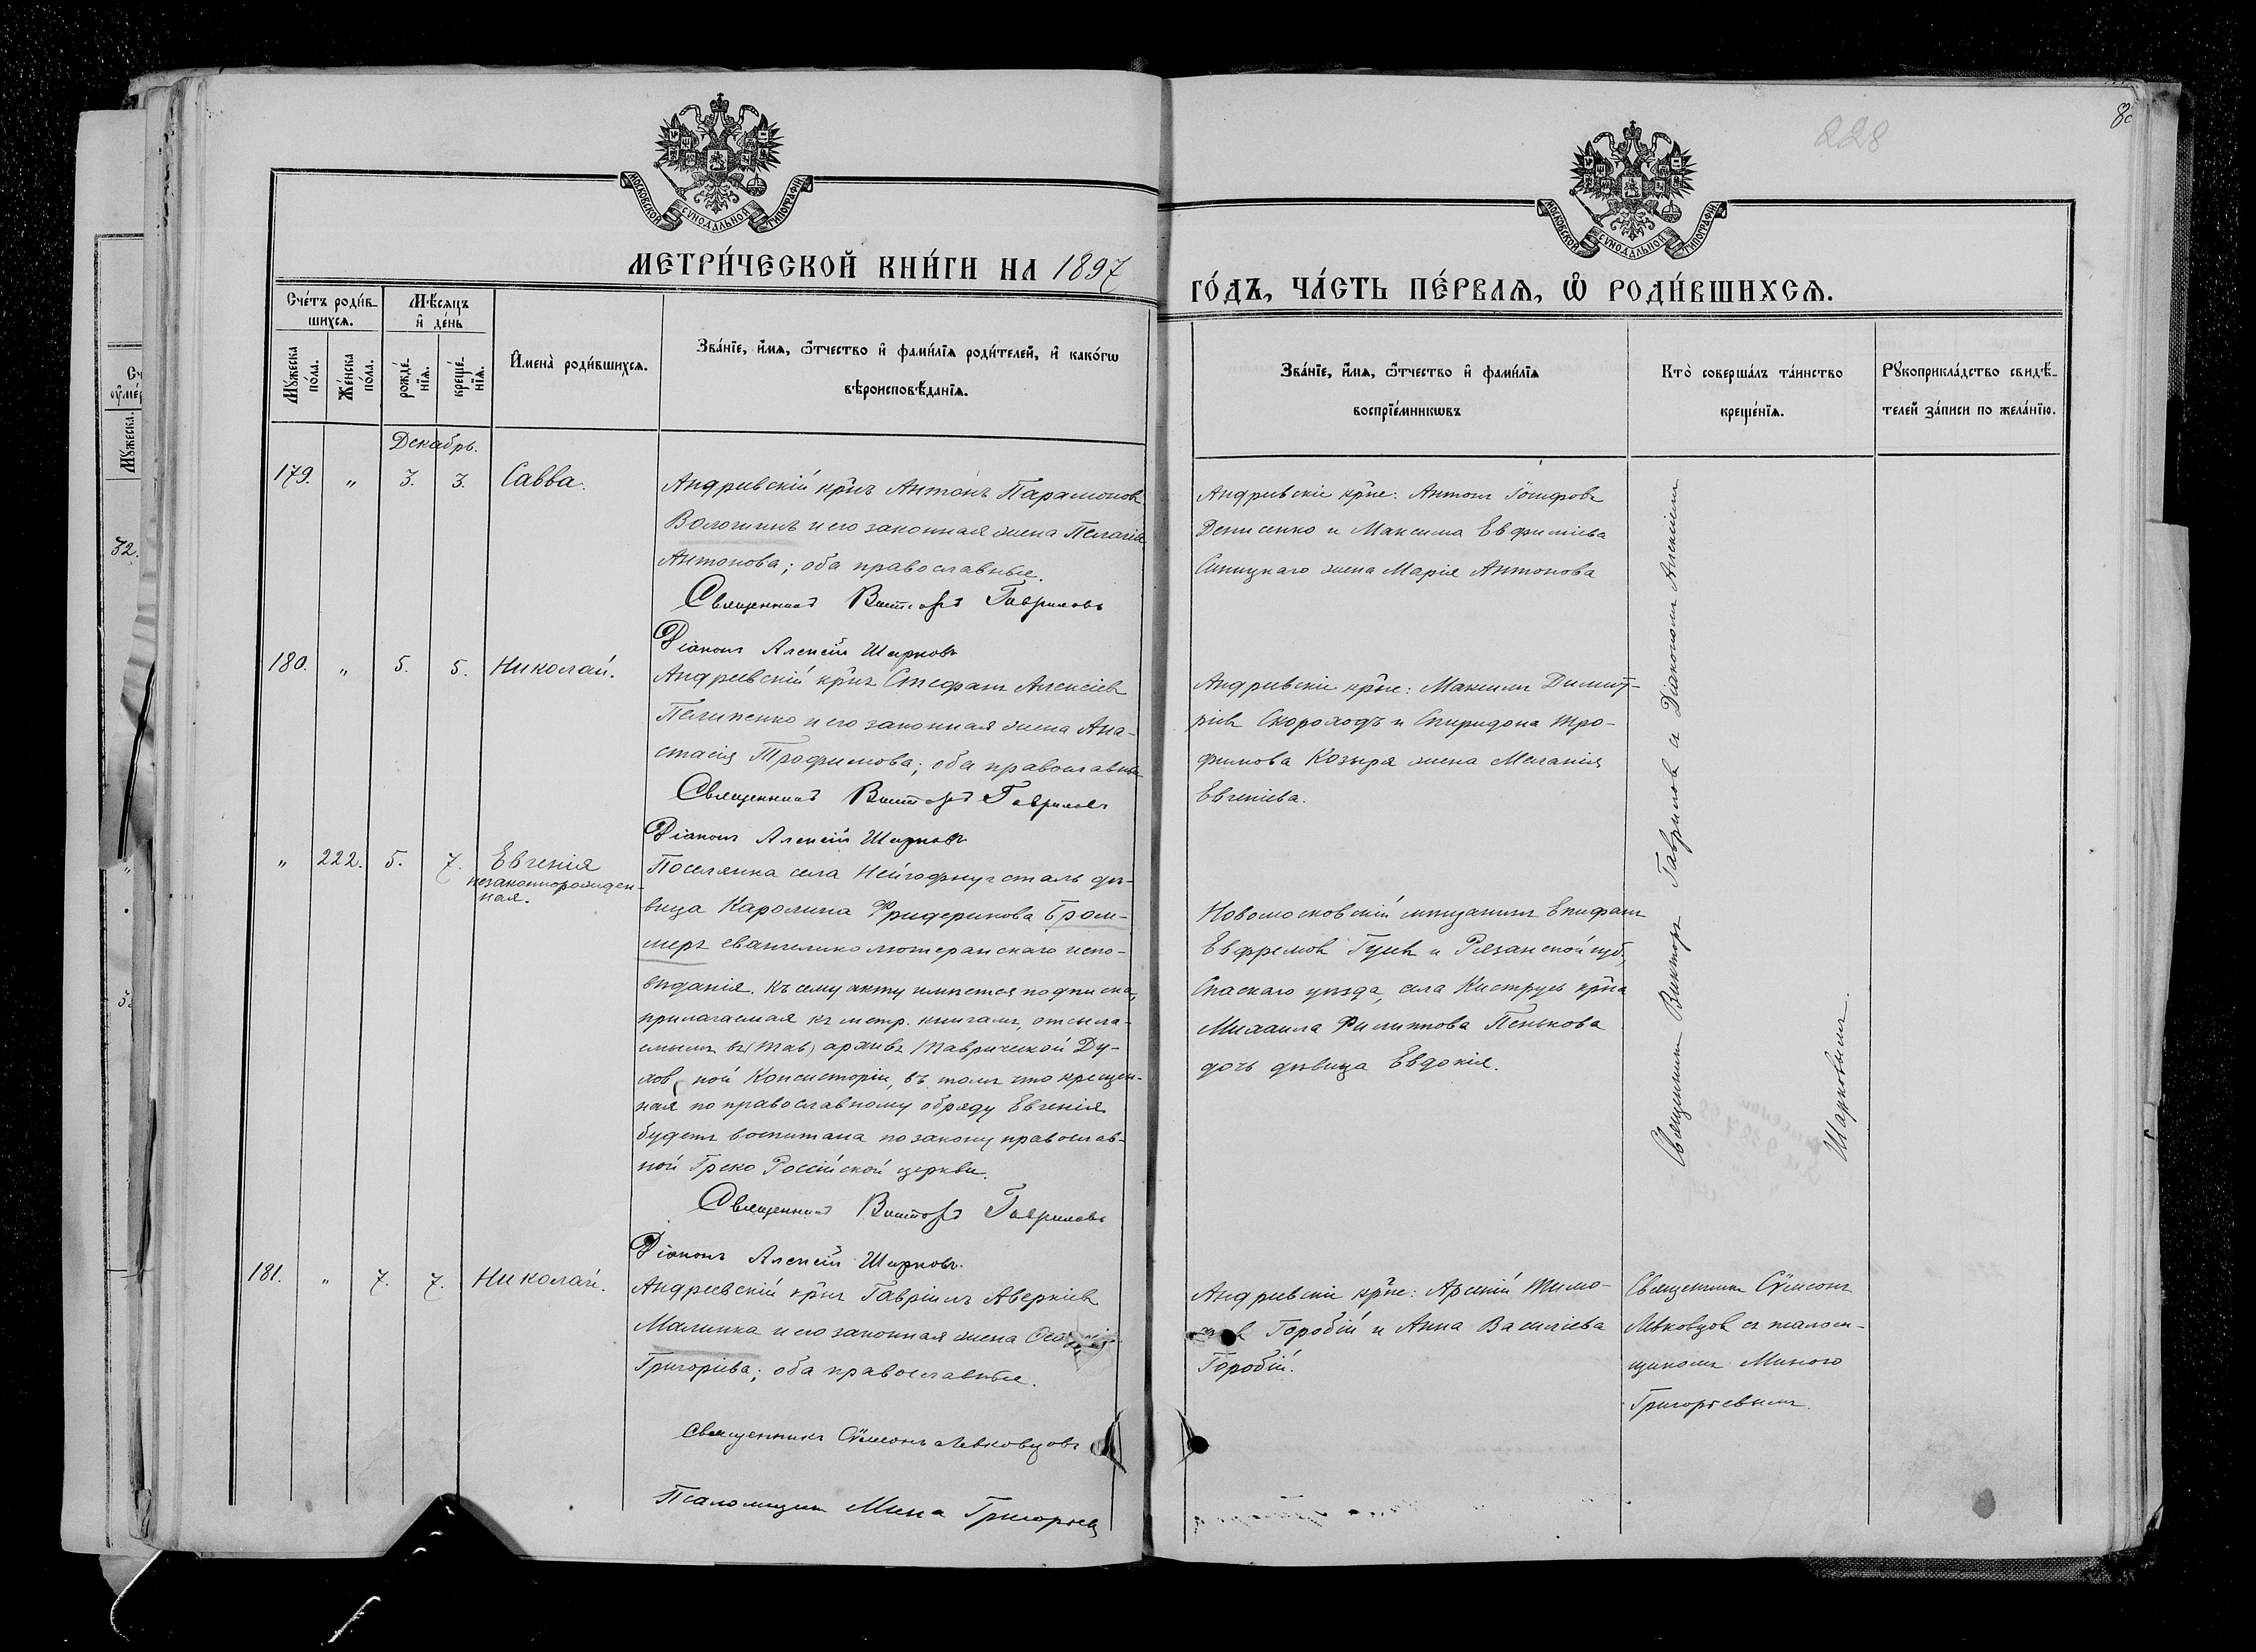 228
МОСКОВСКОЙ СѴНОДАЛЬНОЙ ТИПОГРАФІИ
МОСКОВСКОЙ СѴНОДАЛЬНОЙ ТИПОГРАФІИ
МЕТРИ́ЧЕСКОЙ КНИ́ГИ НА 1897
ГО́ДЪ, ЧА́СТЬ ПЕ́РВАѦ, Ѽ РОДИ́ВШИХСѦ.
Сче́тъ роди́в-
шихсѧ.
Мꙋ́жеска
по́ла.
Же́нска
по́ла.
Мѣ́сѧцъ
и҆ де́нь
рожде́-
нїѧ.
креще́-
нїѧ.
И҆мена̀ роди́вшихсѧ.
Зва́нїе, и҆́мѧ, ѻ҆́тчество и҆ фами́лїѧ роди́телей, и҆ како́гѡ
вѣроисповѣ́данїѧ.
Зва́нїе, и҆́мѧ, ѻ҆́тчество и҆ фами́лїѧ
воспрїе́мникѡвъ
Кто̀ соверша́лъ та́инство
креще́нїѧ.
Рꙋкоприкла́дство свидѣ́-
телей за́писи по жела́нїю.
Декабрь.
179. „ 3. 3. Савва.
Андреевскій кр̃нъ Антонъ Парамоновъ
и его законная жена Пелагія
Антонова; оба православные.
Священникъ Викторъ Гавриловъ
Діаконъ Алексій Шарковъ
Андреевскіе кр̃не: Антонъ Іосифовъ
Денисенко и Максима Евфиміева
жена Марія Антонова
180. „ 5. 5. Николай.
Андреевскій кр̃нъ Стефанъ Алексіевъ
Пелипенко и его законная жена Ана-
стасія Трофимова; оба православные
Священникъ Викторъ Гавриловъ
Діаконъ Алексій Шарковъ
Андреевскіе кр̃не: Максимъ Димит-
ріевъ Скороходъ и Спиридона Тро-
фимова Козыря жена Меланія
Евгеніева.
„ 222. 5. 7. Евгенія
незаконнорожден-
ная.
Поселянка села Нейгофнугсталь дѣ-
вица Каролина Фридерикова Бром-
меръ евангелико лютеранскаго испо-
вѣданія. Къ сему акту имѣется подписка,
прилагаемая къ метр. книгамъ, отсыла-
емымъ въ (Тав) архивъ Таврической Ду-
хов ной Консисторіи, въ томъ что крещен-
ная по православному обряду Евгенія
будетъ воспитана по закону православ-
ной Греко Россійской церкви.
Священникъ Викторъ Гавриловъ
Діаконъ Алексій Шарковъ.
Новомосковскій мѣщанинъ Епифанъ
Евфремовъ и Рязанской губ.,
Спаскаго уѣзда, села Киструсъ кр̃на
Михаила Филиппова Пенькова
дочь дѣвица Евдокія.
Священникъ Викторъ Гавриловъ съ Діакономъ Алексіемъ
Шарковымъ.
181. „ 7. 7. Николай.
Андреевскій кр̃нъ Гавріилъ Аверкіевъ
Малинка и его законная жена
Григоріева; оба православные.
Священникъ Сѵмеонъ Левковцовъ
Псаломщикъ Мина Григорьевъ
Андреевскіе кр̃не: Арсеній Тимо-
Горобій и Анна Василіева
Горобій.
Священникъ Сѵмеонъ
Левковцовъ съ псалом-
щикомъ Миною
Григорьевымъ.